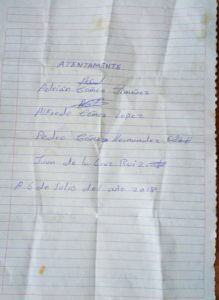 ATENTAMENTE
Adrián Gómez Jiménez
Alfredo Gómez Lopez
Pedro Gómez Hernandez
Juan de la Cruz Ruiz
A 6 de Julio del año 2018